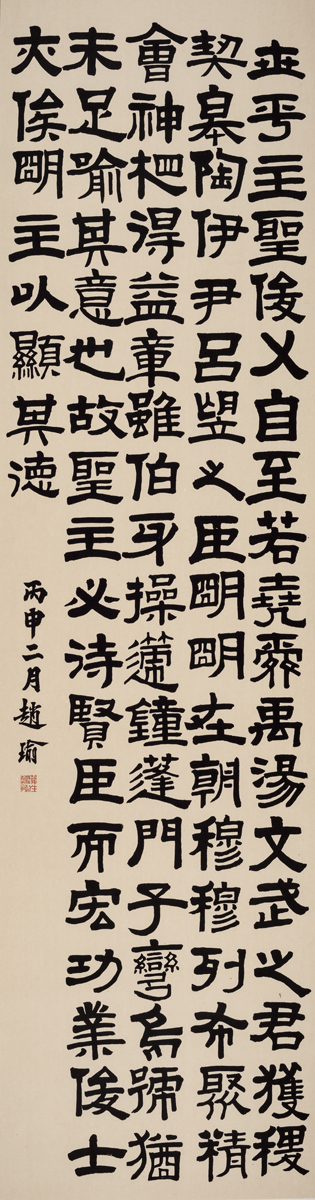 世平主聖俊乂自至若堯舜禹湯文武之君獲稷
契皋陶伊尹呂望之臣明明在朝穆穆列布聚精
會神相得益章雖伯牙操鐘蓬門子彎烏號猶
未足喻其意也故聖主必待賢臣而宏功業俊士
亦俟明主以顯其德
丙申二月趙瑜